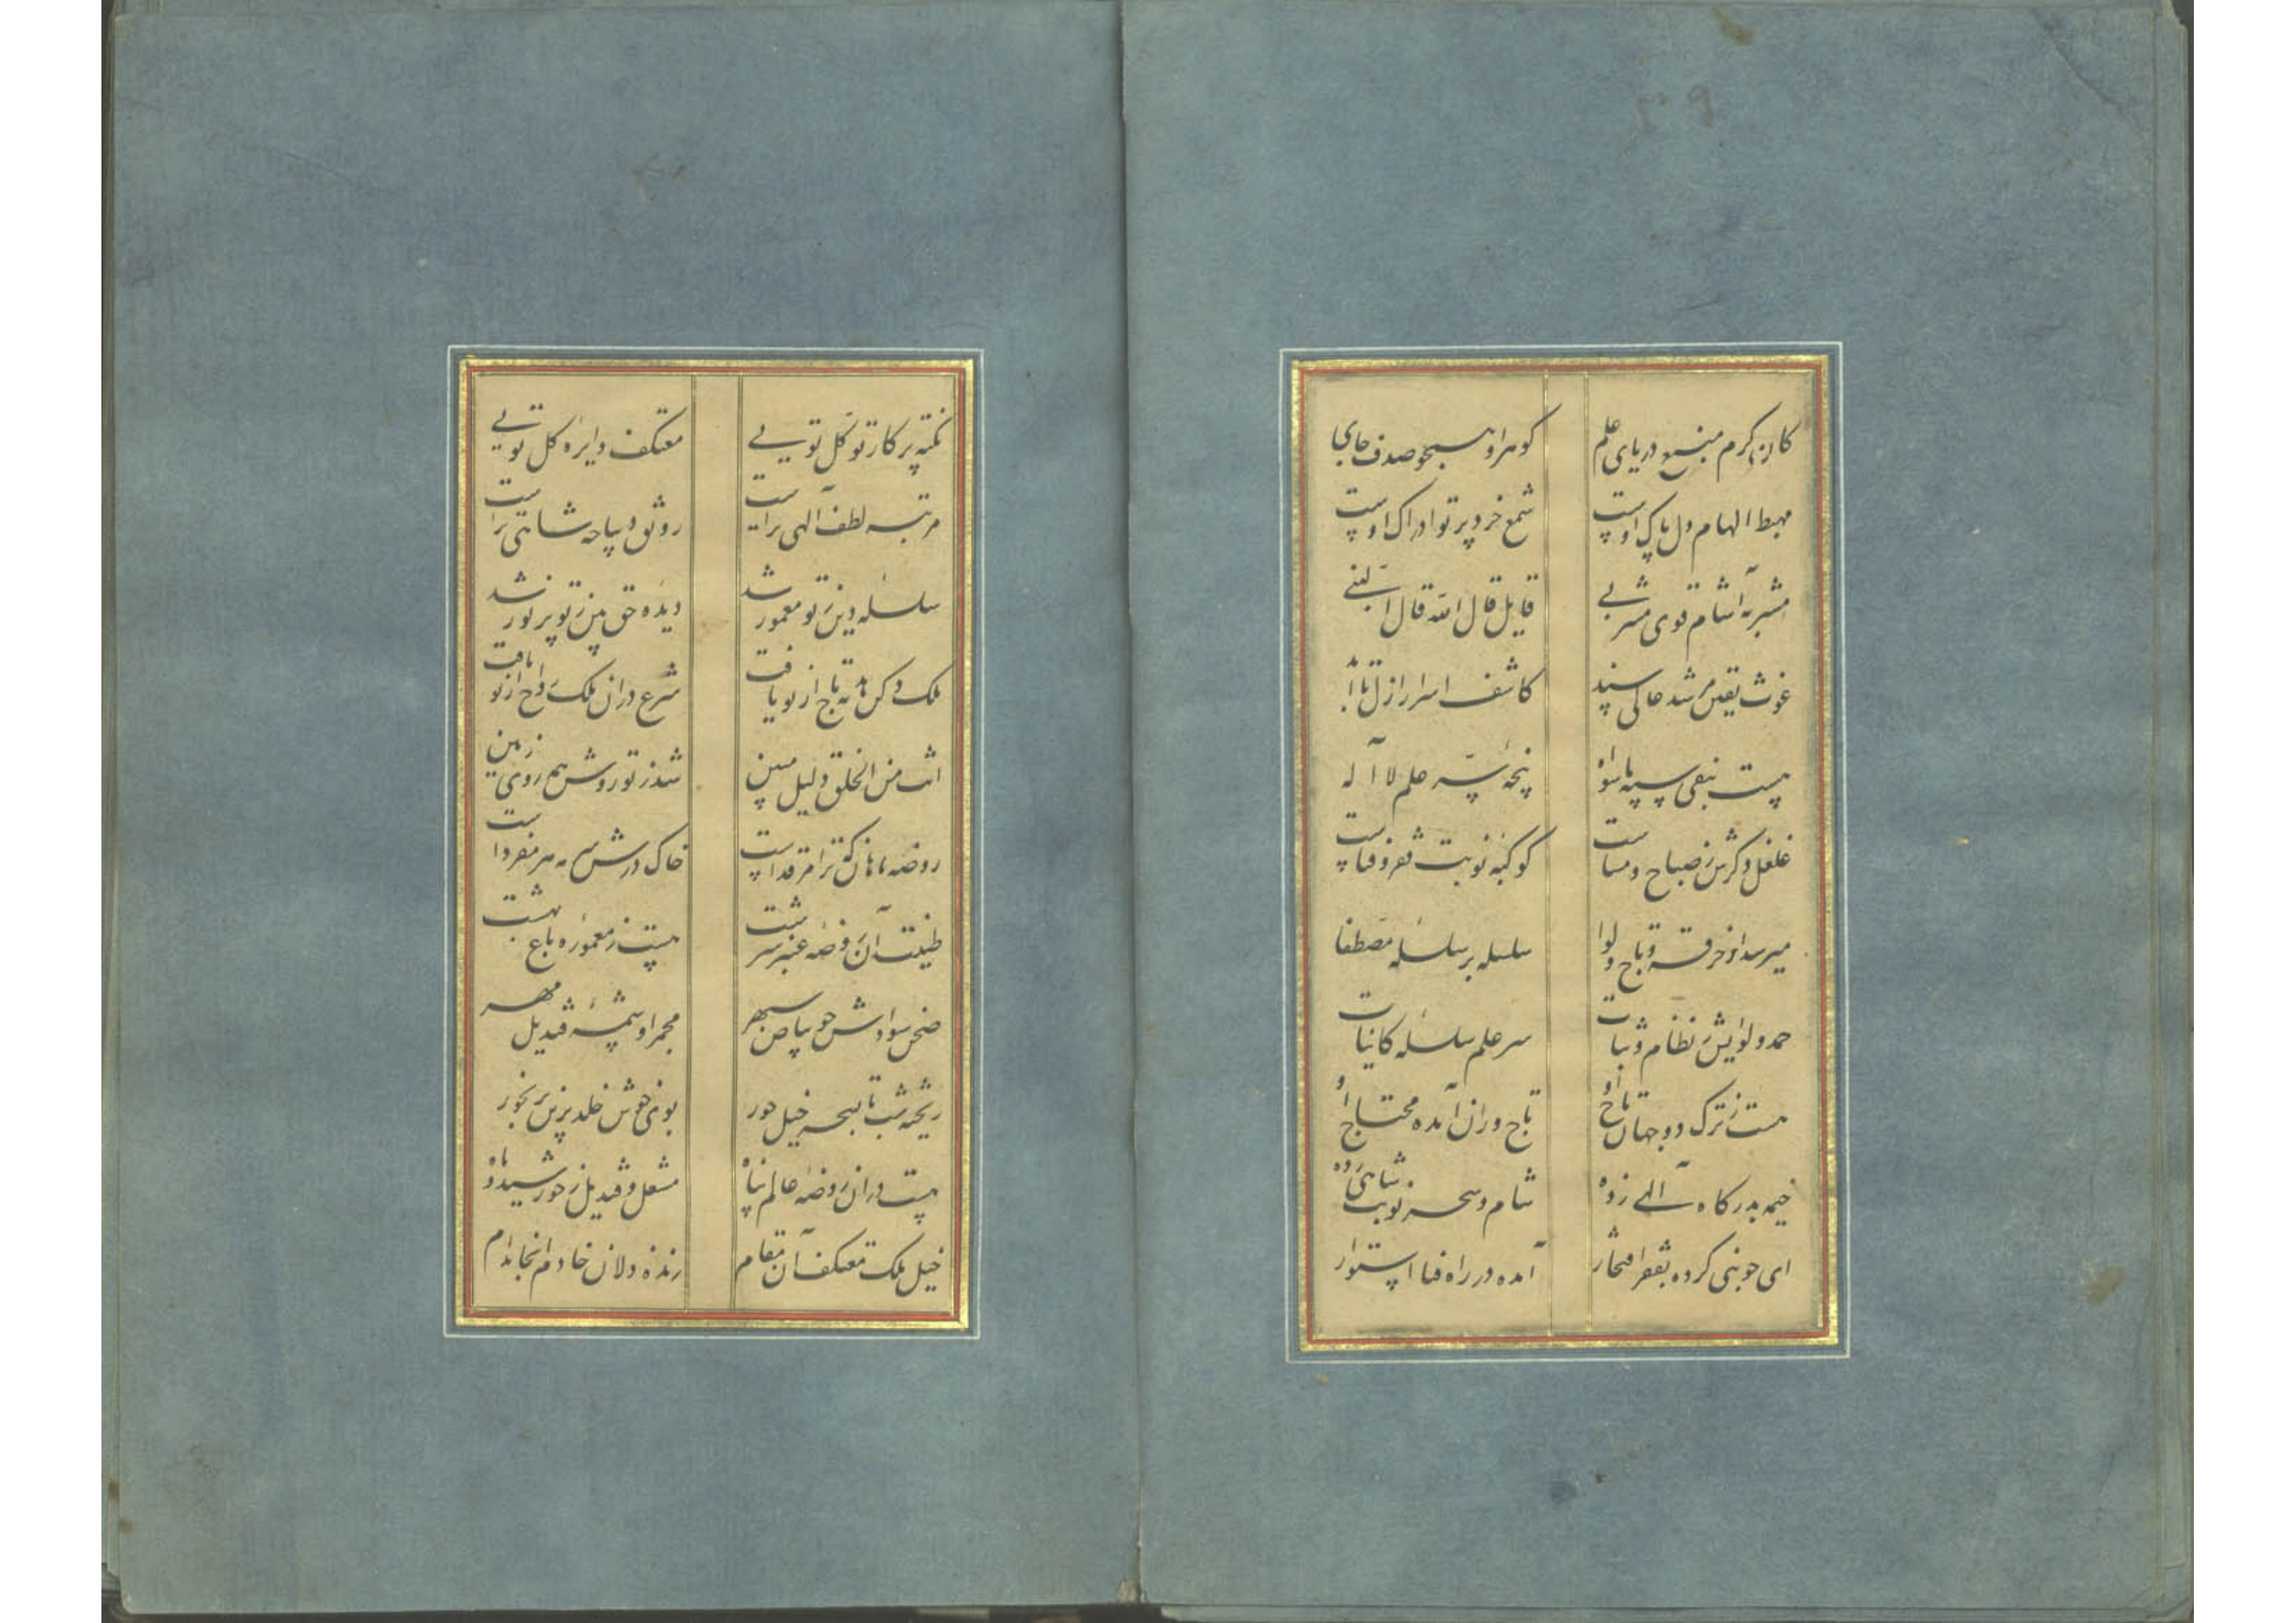 کان کرم منبع دریای علم گوهر او همچو صدف جای
مهبط الهام دل پاک اوست شمع خرد پرتو ادراک اوست
مشربه آشام قوی مشربی قایل قال الله قال النبی
غوث یقین مرشد عالی سند کاشف اسرار ازل تا ابد
هست بنفی سپه ماسواه پنجه علم لا اله
غلغل ذکرش ز صباح و مساست کوکبه نوبت فقر و فناست
میرسد از خرقه و تاج و لوا سلسله بر سلسله مصطفا
حمد و لوایش ز نظام و ثبات سر علم سلسله کاینات
هست ز ترک دو جهان تاج او تاج وران آمده محتاج او
خیمه بدرگاه الهی زده شام و سحر نوبت شاهی زده
ای چو نبی کرده بفقر افتخار آمده در راه فنا استوار
نکته پرکار توکل تویی معتکف دایره کل تویی
مرتبه لطف الهی تراست رونق دیباچه شاهی تراست
سلسله دین ز تو معمور شد دیده حق بین ز تو پرنور شد
ملک دکن مایه تاج از تو یافت شرع در آن ملک رواج از تو یافت
انت من الخلق دلیل مبین شد ز تو روشن همه روی زمین
روضه ماهان که ترا مرقد است خاک درش سرمه هر مفرد است
طینت آن روضه عنبر سرشت هست ز معموره باغ بهشت
صحن سوادش چو بیاض سپهر مجمر او شمسه قندیل مهر
ریخته شب تا بسحر خیل حور بوی خوش خلد برین بر بخور
هست در آن روضه عالم پناه مشعل و قندیل ز خورشید و ماه
خیل ملک معتکف آن مقام زنده دلان خادم آنجا مدام